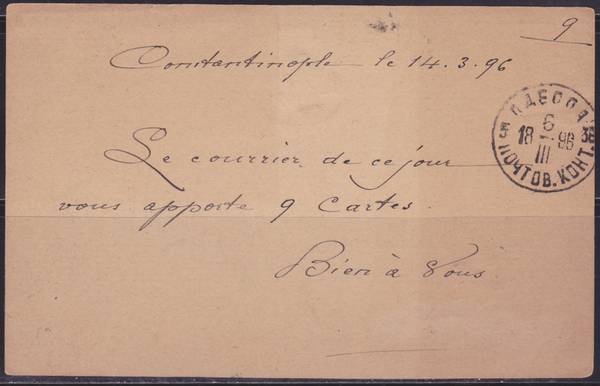 9
Constantinople le 14.3.96
Le courrier de ce jour
vous apporte 9 Cartes.
Bien à Vous
ОДЕССА
6
18 96
III
ПОЧТОВ. КОНТ.